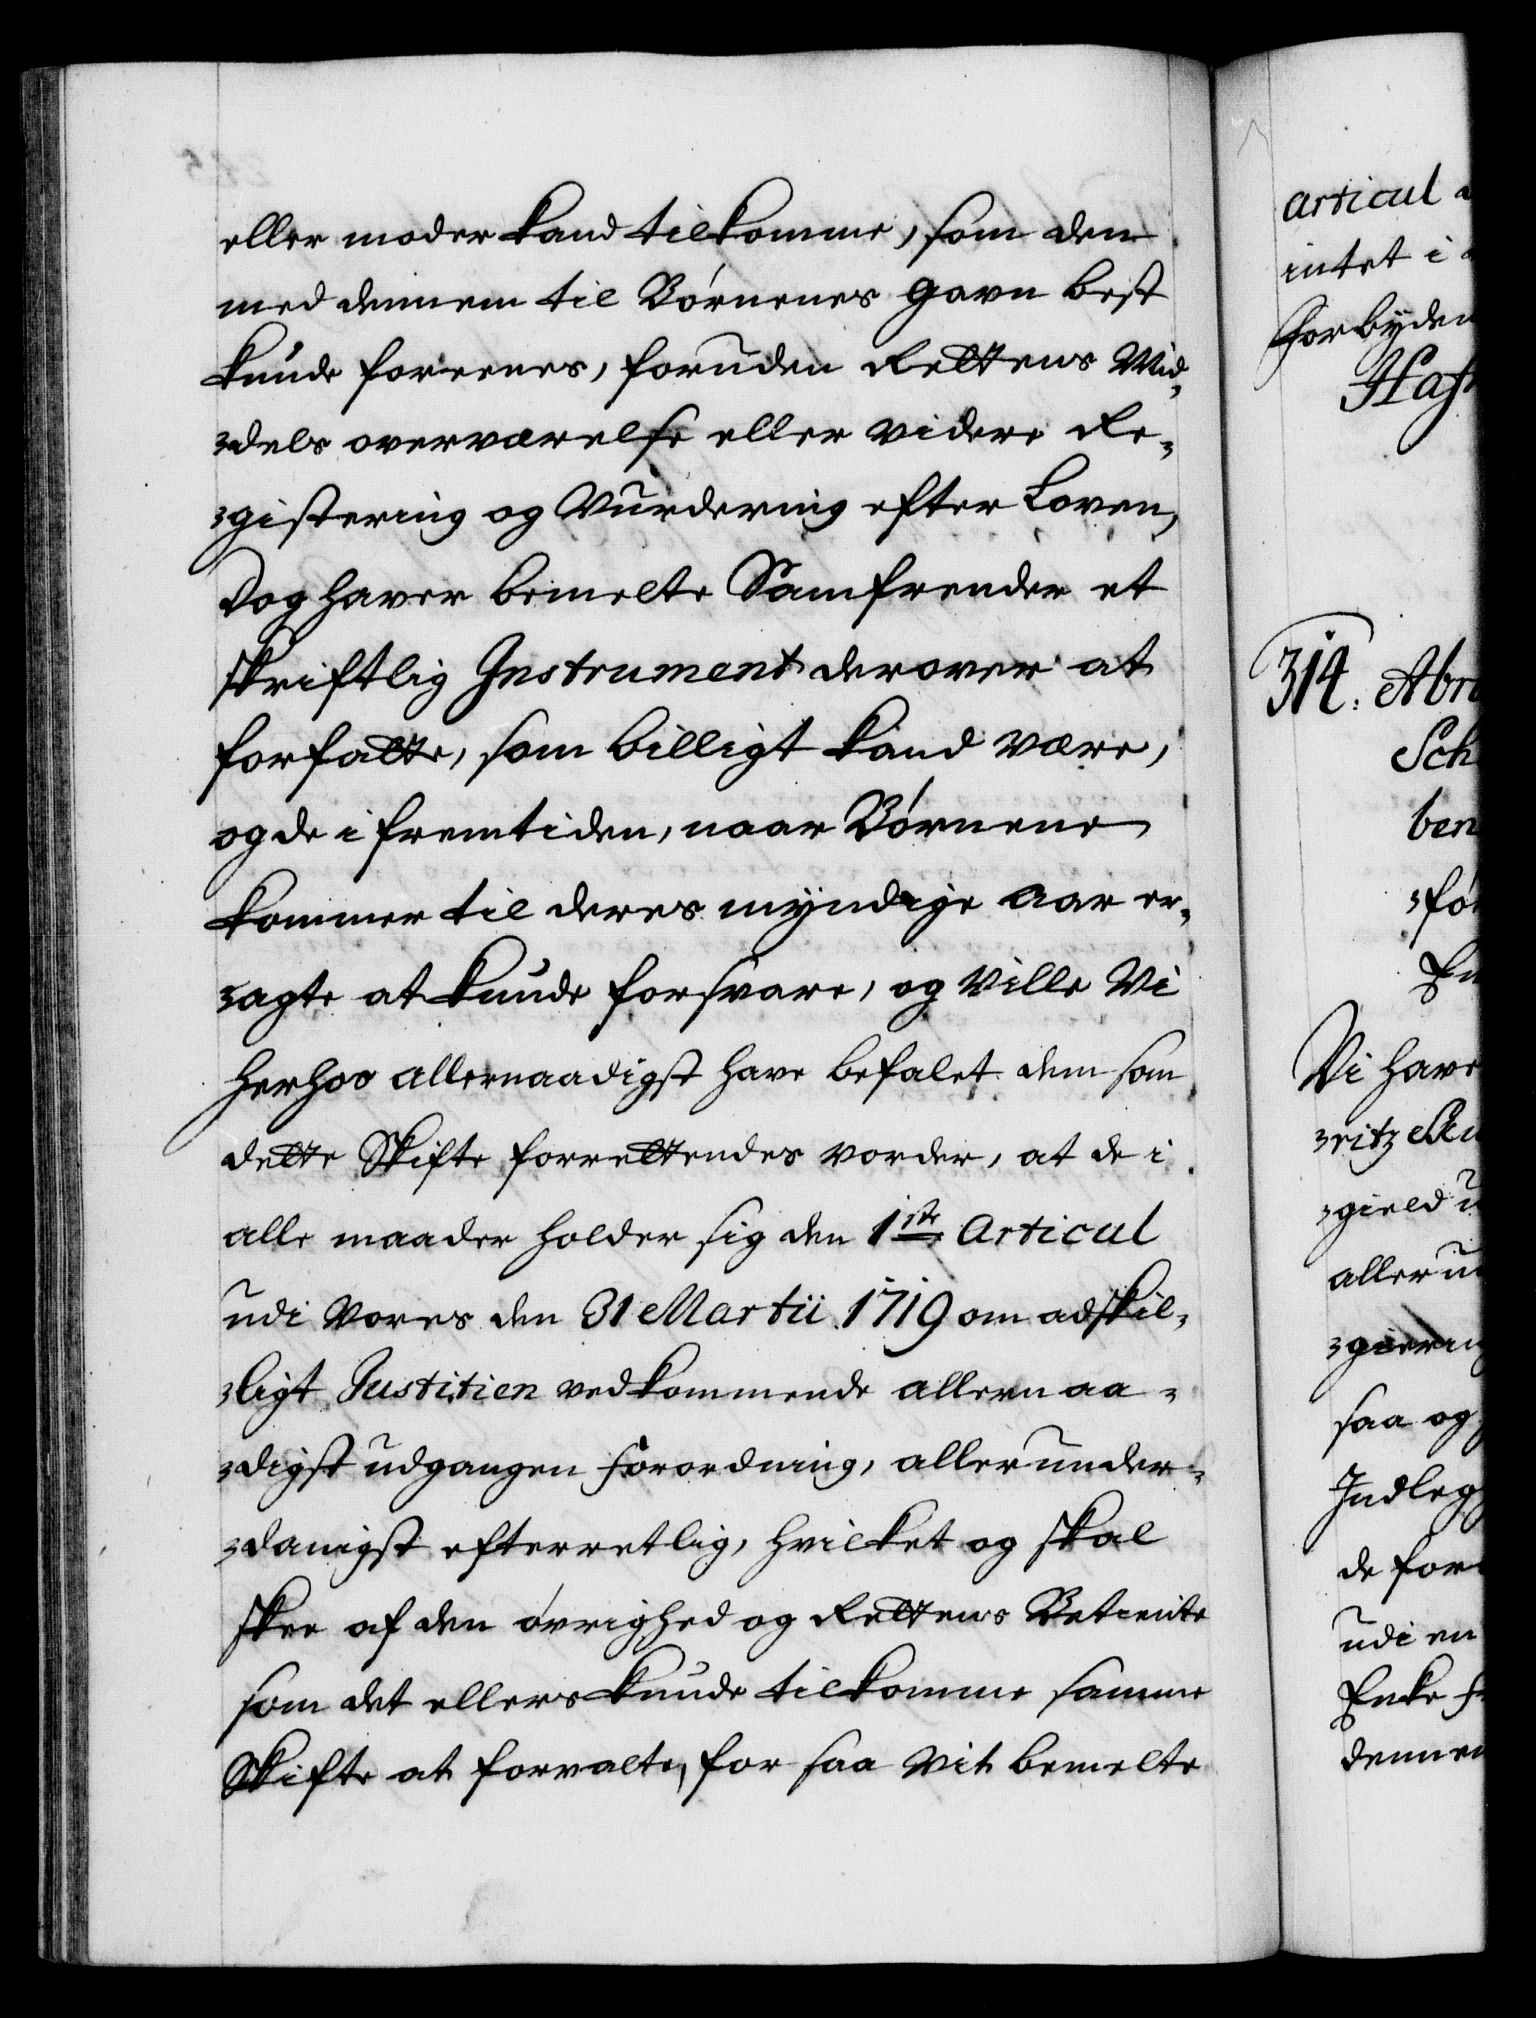 eller moder kand tilkomme, som den
med dennem til Børnenes gavn best
kunde foreenes, foruden Rettens Mid¬
¬dels overværelse eller videre Re¬
¬gistering og Vurdering efter Loven,
Dog haver bemelte Samfrender et
skriftlig Instrument derover at
forfatte, som billigt kand være,
og de i fremtiden, naar Børnene
kommer til deres myndige aar er¬
¬agte at kunde forsvare, og Ville Vi
herhos allernaadigst have befalet dem som
dette Skifte forrettendes vorder, at de i
alle maader holder sig den 1ste Articul
udi Vores den 31 Martii 1719 om adskil¬
¬ligt Justitien vedkommende allernaa¬
¬digst udgangen Forordning, allerunder¬
¬danigst efterretlig, hvilket og skal
skee af den øvrighed og Rettens Betiente
som det ellers kunde tilkomme samme
Skifte at forvalte, for saa vit bemelte
articul
intet i
forbyden
Haf
314. Abr
Sch
ben
¬før
En
Vi have
¬ritz
¬gield
aller un
¬giering
saa og
Indleg
de for
udi en
Enke
dennem